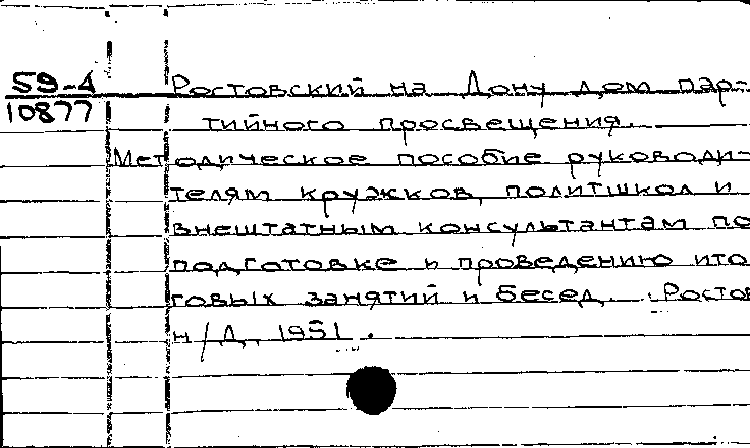 59-4
10877
Ростовский на Дону дом пар-
тийного просвещения.
Методическое пособие руководи-
телям кружков, политшкол и
внештатным консультантам по
подготовке и проведению ито
говых занятий и бесед. Ростов
н/Д, 1951.